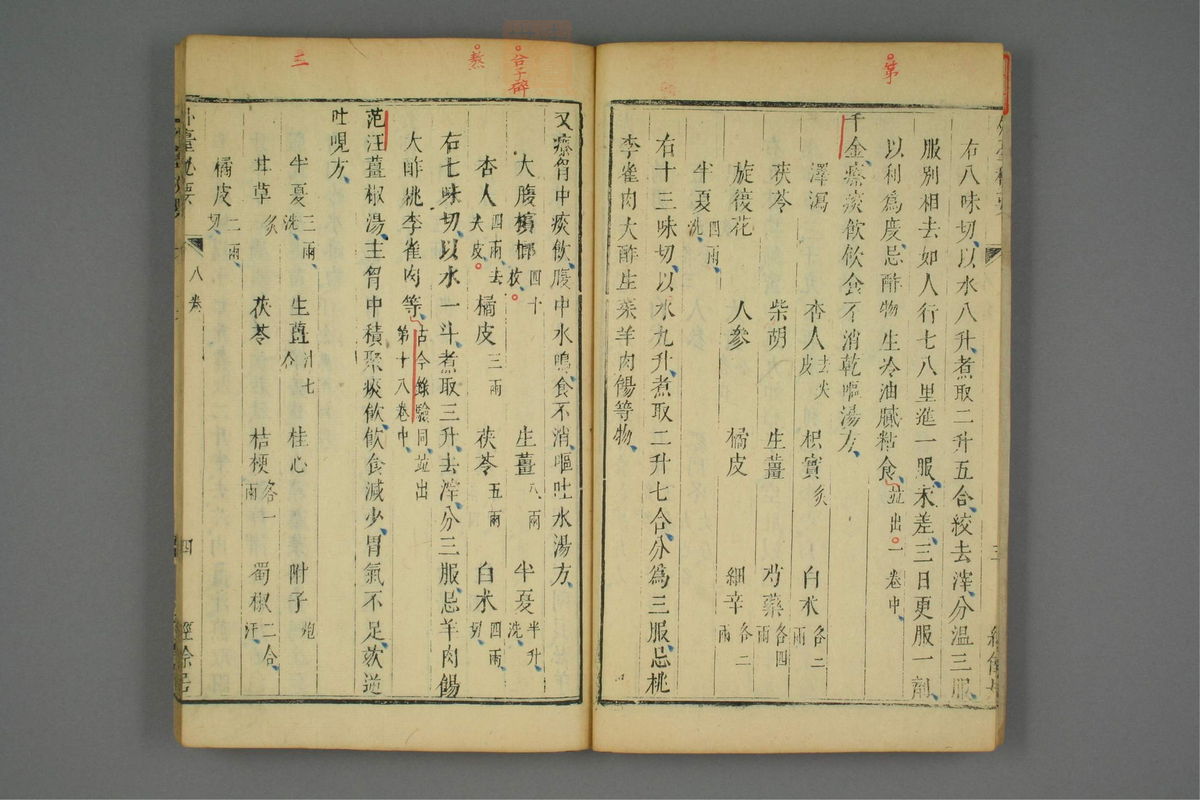 第
右八味切以水八升煮取二升五合絞去滓分溫三服
服別相去如人行七八里進一服未差三日更服一劑
以利爲度忌酢物生冷油膩粘食並出一卷中
千金療痰飲飲食不消乾嘔湯方
澤瀉 杏人去尖皮 枳實炙 白朮各二兩
茯苓 柴胡 生薑 芍藥各四兩
旋覆花 人參 橘皮 細辛各二兩
半夏四兩洗
右十三味切以水九升煮取二升七合分爲三服忌桃
李雀肉大酢生菜羊肉餳等物
合子碎
熬
三
又療胷中痰飲腹中水鳴食不消嘔吐水湯方
大腹檳榔四十枚 生薑八兩 半夏半升洗
杏人四兩去尖皮 橘皮三兩 茯苓五兩 白朮四兩切
右七味切以水一斗煮取三升去滓分三服忌羊肉餳
大酢桃李雀肉等古今錄驗同並出第十八卷中
范汪薑椒湯主胷中積聚痰飲飲食減少胃氣不足欬逆
吐哯方
半夏三兩洗 生薑汁七合 桂心 附子炮
甘草炙 茯苓 桔梗各一兩 蜀椒二合汗
橘皮二兩切
八卷
四
經餘居